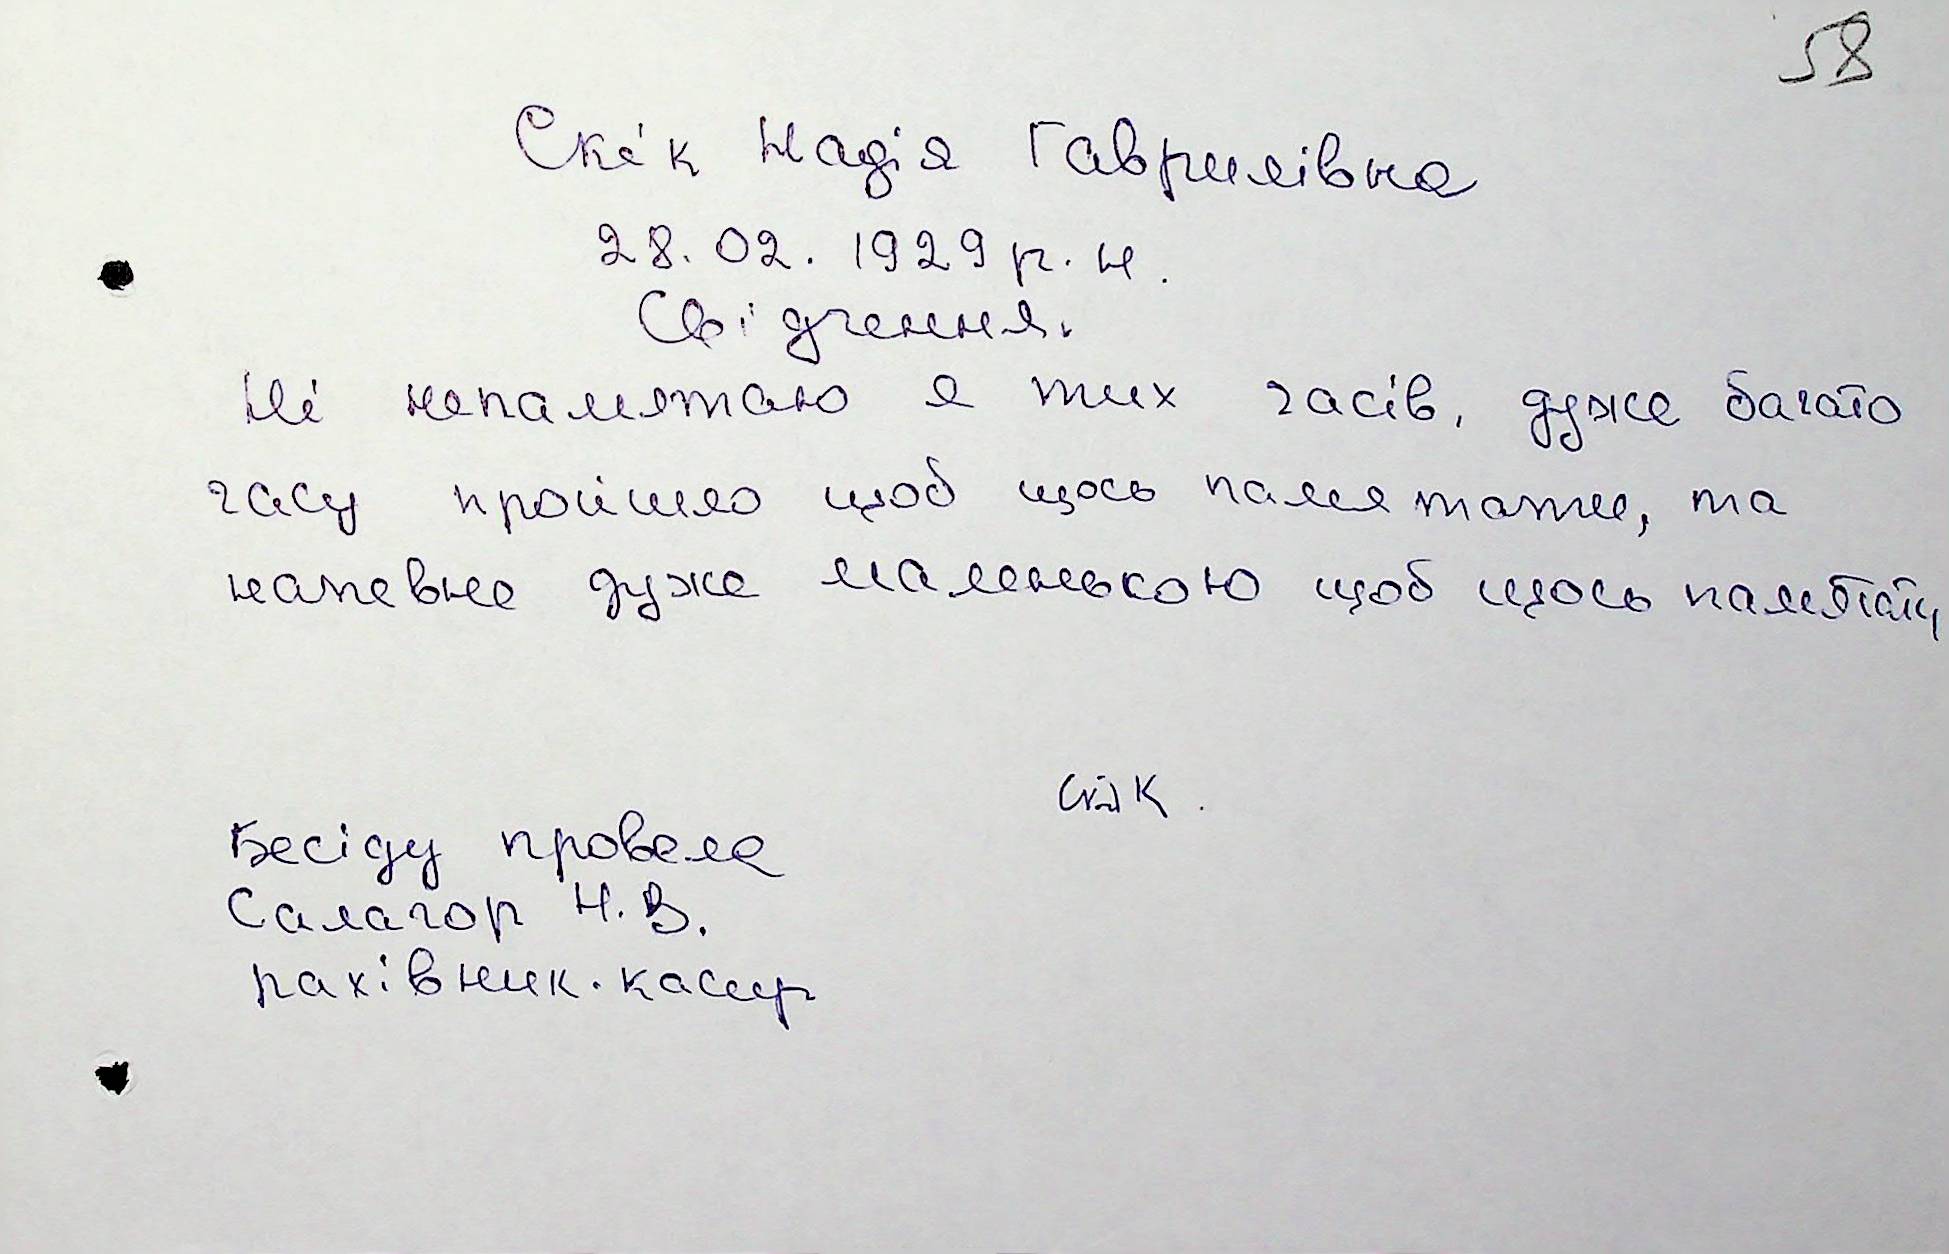 58
Скік Надія Гаврилівна
28.02.1929 р.н.
Свідчення.
Ні непамятаю я тих часів, дуже багато
часу пройшло щоб щось памятати, та
напевне дуже маленькою щоб щось памятати
Скік.
Бесіду провела
Салагор Н.В.
рахівник-касир